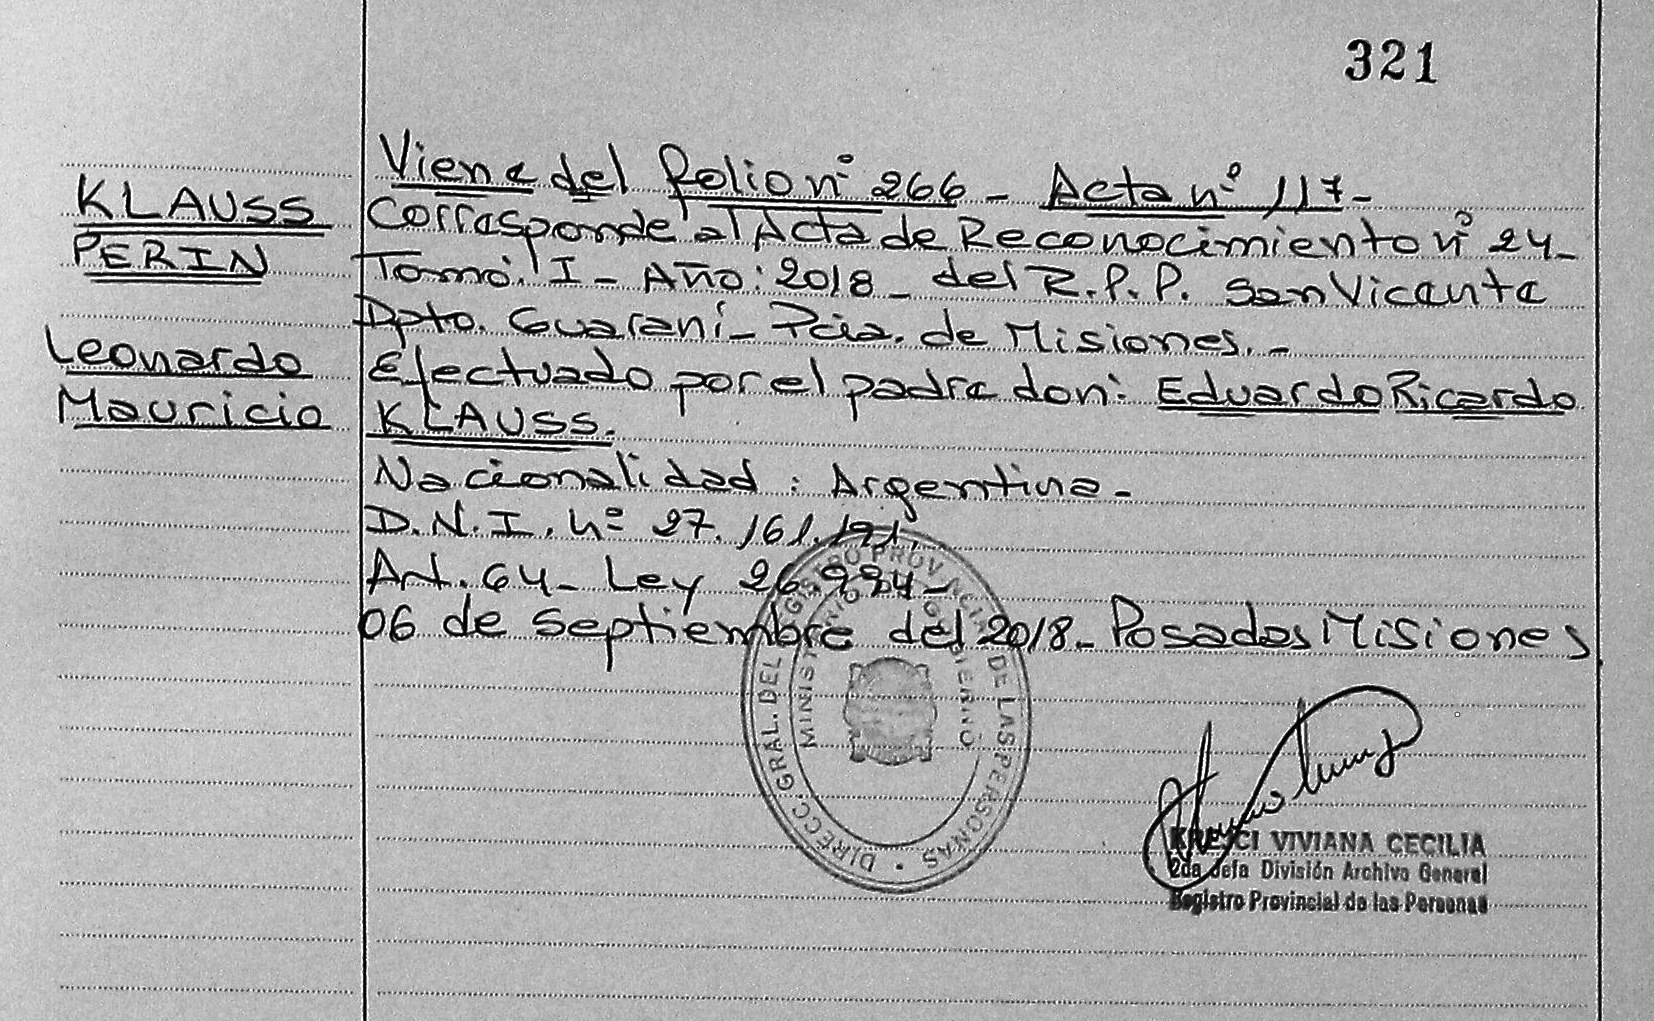 321
KLAUSS
PERIN
Leonardo
Mauricio
Viene del folio nº 266 - Acta nº 117-
Corresponde al Acta de Reconocimiento nº 24-
Tomo: I - Año: 2018 - del R.P.P. San Vicente
Dpto. Guaraní - Pcia. de Misiones. -
Efectuado por el padre don: Eduardo Ricardo
KLAUSS.
Nacionalidad : Argentina -
D.N.I. nº 27.161.191.
Art. 64 - Ley 26.994 -
06 de Septiembre del 2018 - Posadas Misiones
DIRECC. GRAL. DEL REGISTRO PROVINCIAL DE LAS PERSONAS
MINISTERIO DE GOBIERNO
KREYCI VIVIANA CECILIA
2da Jefa División Archivo General
Registro Provincial de las Personas